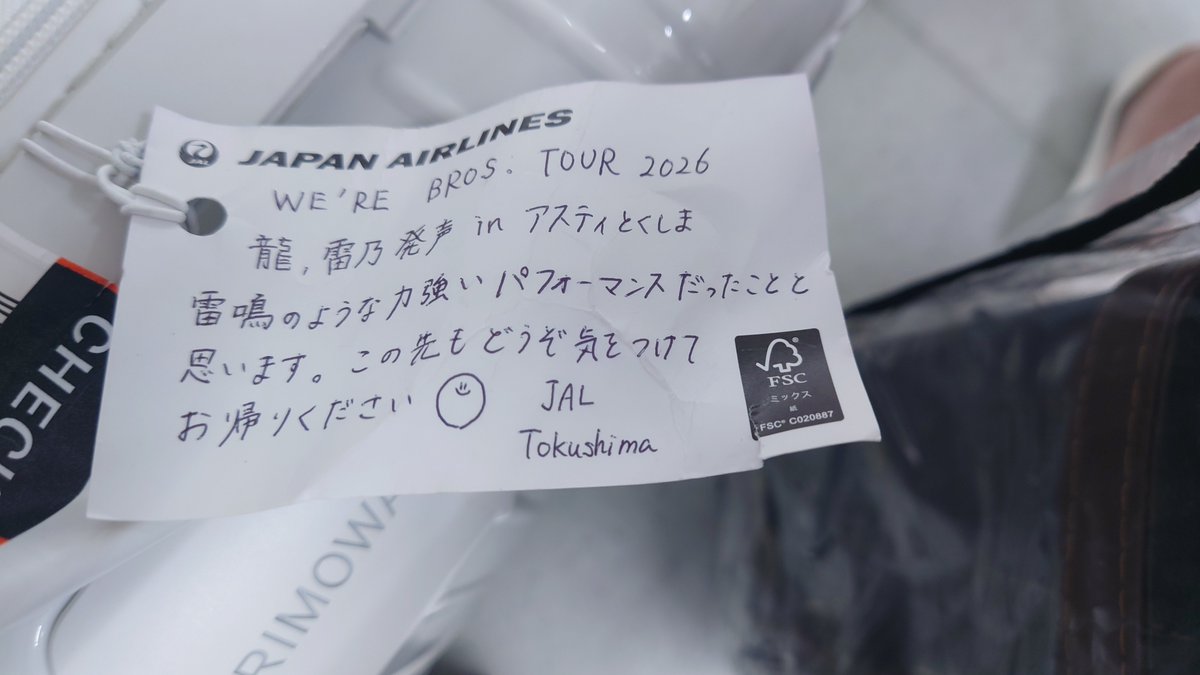 JAPAN AIRLINES
WE'RE BROS. TOUR 2026
龍,雷乃発声 in アスティとくしま
雷鳴のような力強いパフォーマンスだったことと
思います。この先もどうぞ気をつけて
お帰りください
JAL
Tokushima
FSC
ミックス
紙
FSC® C020887
CHEC
RIMOWA